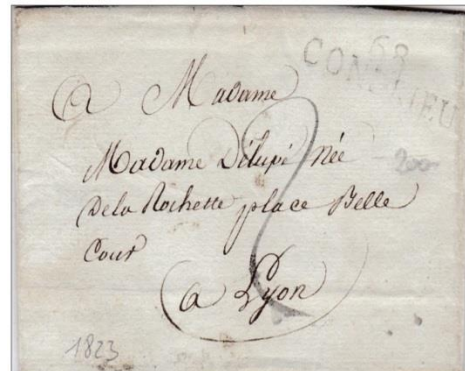 68
CONDRIEU
a Madame
Madame Dilupé Née
200
Dela Rochette place Belle
Cour
2
a Lyon
1823